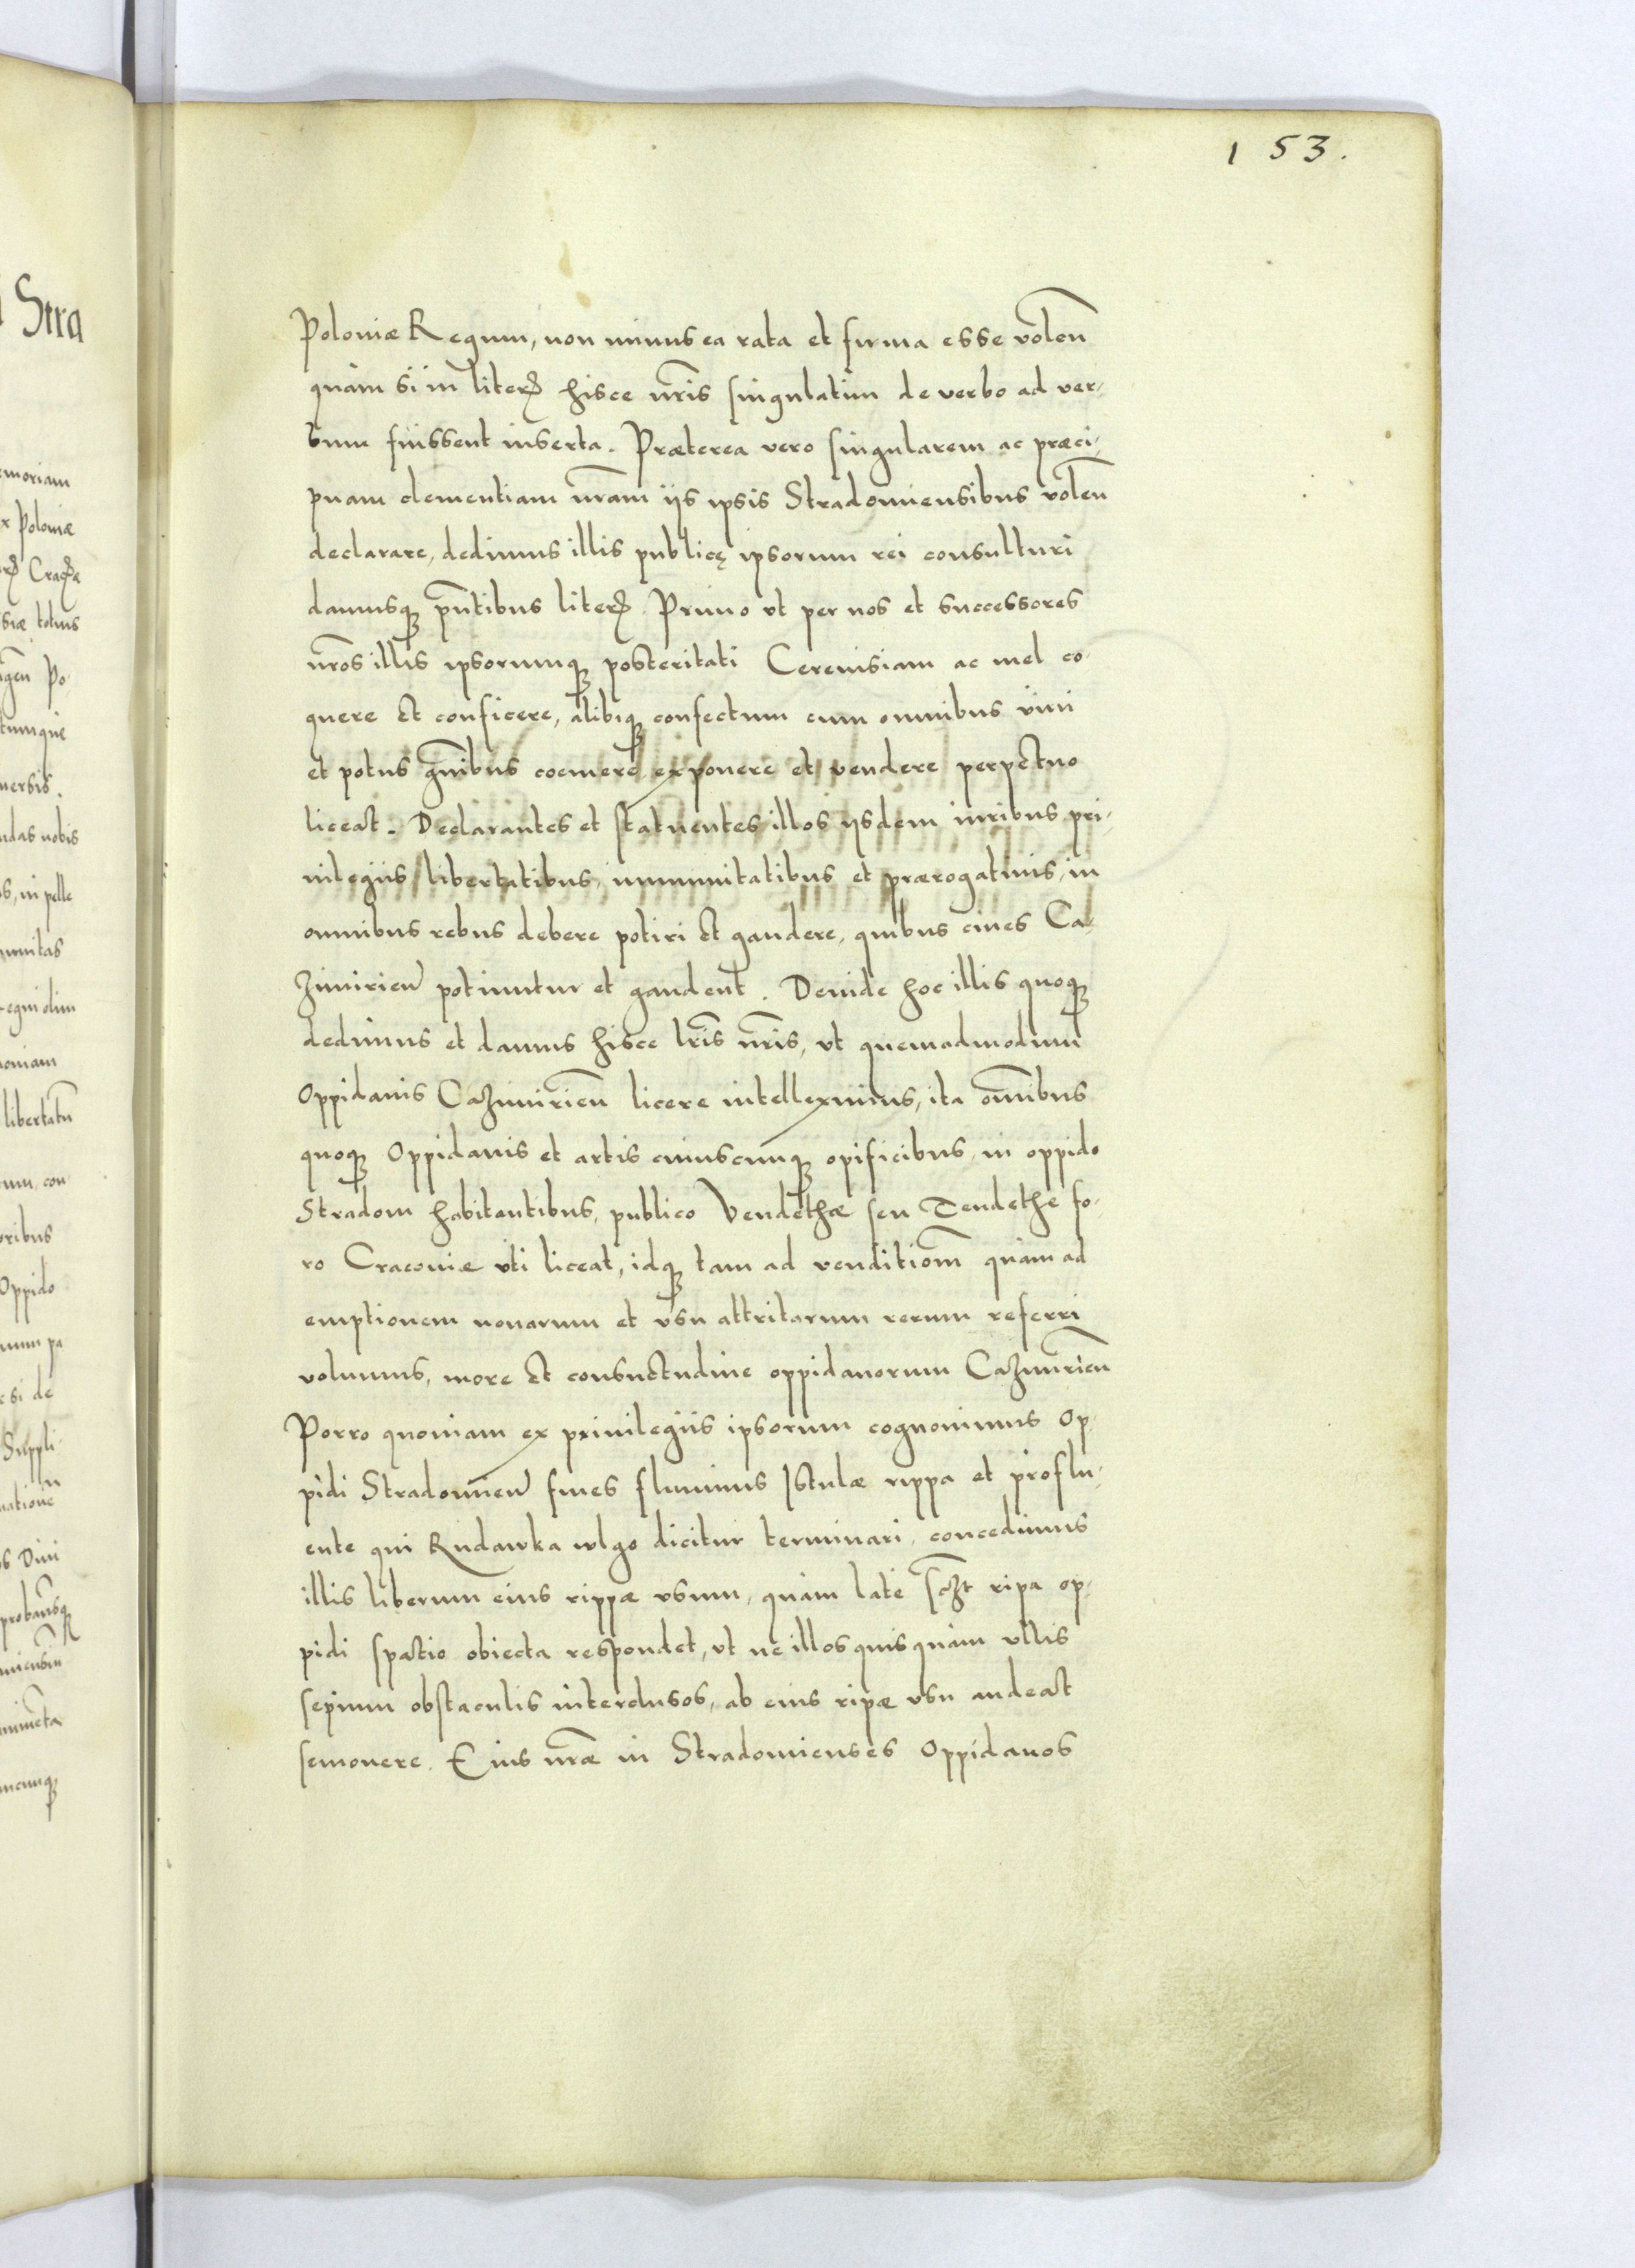 153.
Poloniæ Regum, non minus ea rata et firma esse volen̄
quàm si in literꝭ hisce nr̄is singulatim de verbo ad ver-
bum fuissent inserta. Præterea vero singularem ac præci-
puam clementiam nr̄am iis ipsis Stradomiensibus volen̄
declarare, dedimus illis publicę ipsorum rei consulturi
damusqꝫ pn̄tibus literꝭ. Primo vt per nos et successores
nr̄os illis ipsorumqꝫ posteritati Cereuisiam ac mel co-
quere et conficere, alibiqꝫ confectum cum omnibus vini
et potus gn̄ibus coemere exponere et vendere perpetuo
liceat. Declarantes et statuentes illos iisdem iuribus pri-
uilegiis libertatibus, immunitatibus et prærogatiuis, in
omnibus rebus debere potiri et gaudere, quibus ciues Ca-
zimirien̄ potiuntur et gaudent. Deinde hoc illis quoqꝫ
dedimus et damus hisce lr̄is nr̄is, vt quemadmodum
Oppidanis Cazimirien̄ licere intelleximus, ita om̄ibus
quoqꝫ Oppidanis et artis cuiuscunqꝫ opificibus in oppido
Stradom habitantibus, publico Vendethæ seu Tendethe fo-
ro Cracouiæ vti liceat, idqꝫ tam ad venditiom̄ quàm ad
emptionem nouarum et vsu attritarum rerum referri
volumus, more et consuetudine oppidanorum Cazimirien̄
Porro quoniam ex priuilegiis ipsorum cognouimus Op-
pidi Stradomien̄ fines fluminis Istulæ rippa et proflu-
ente qui Rudawka wlgo dicitur terminari, concedimus
illis liberum eius rippæ vsum, quàm late ripa op-
pidi spatio obiecta respondet, vt ne illos quisquàm vllis
sepium obstaculis interclusos, ab eius ripæ vsu audeat
semouere. Eius nr̄æ in Stradomienses Oppidanos